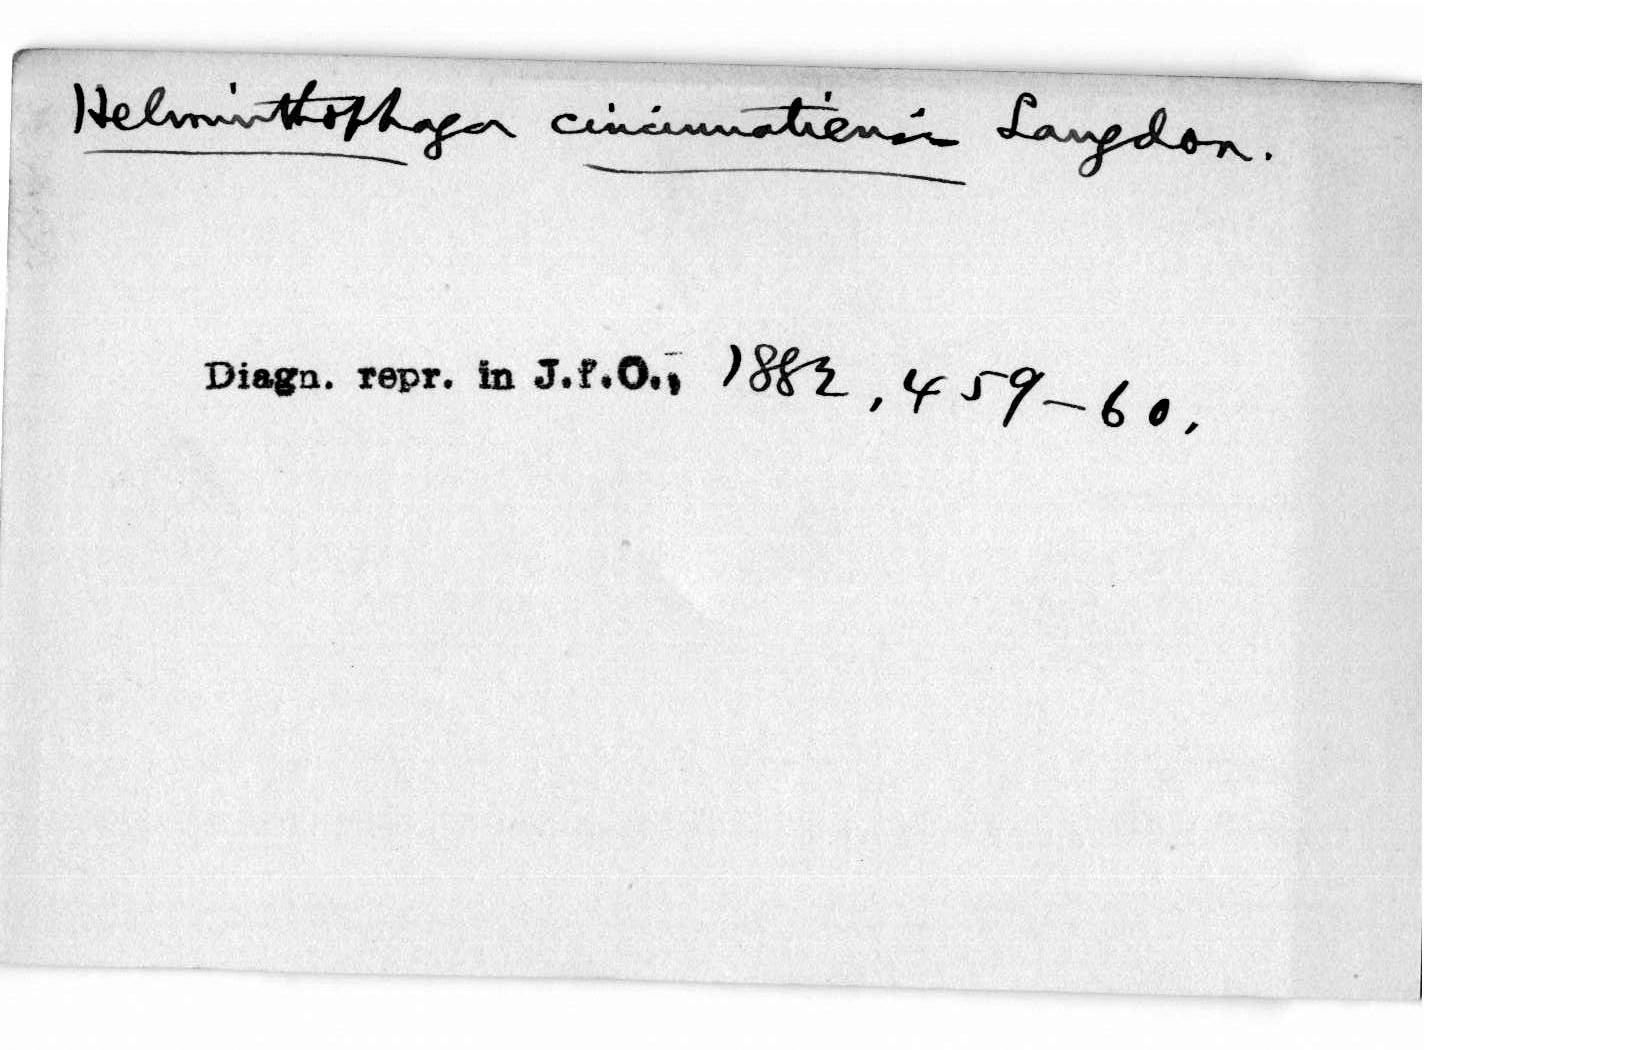 Helminthophaga cincinnatiensis Langdon.
Diagn. repr. in J.f.O., 1882, 459-60,